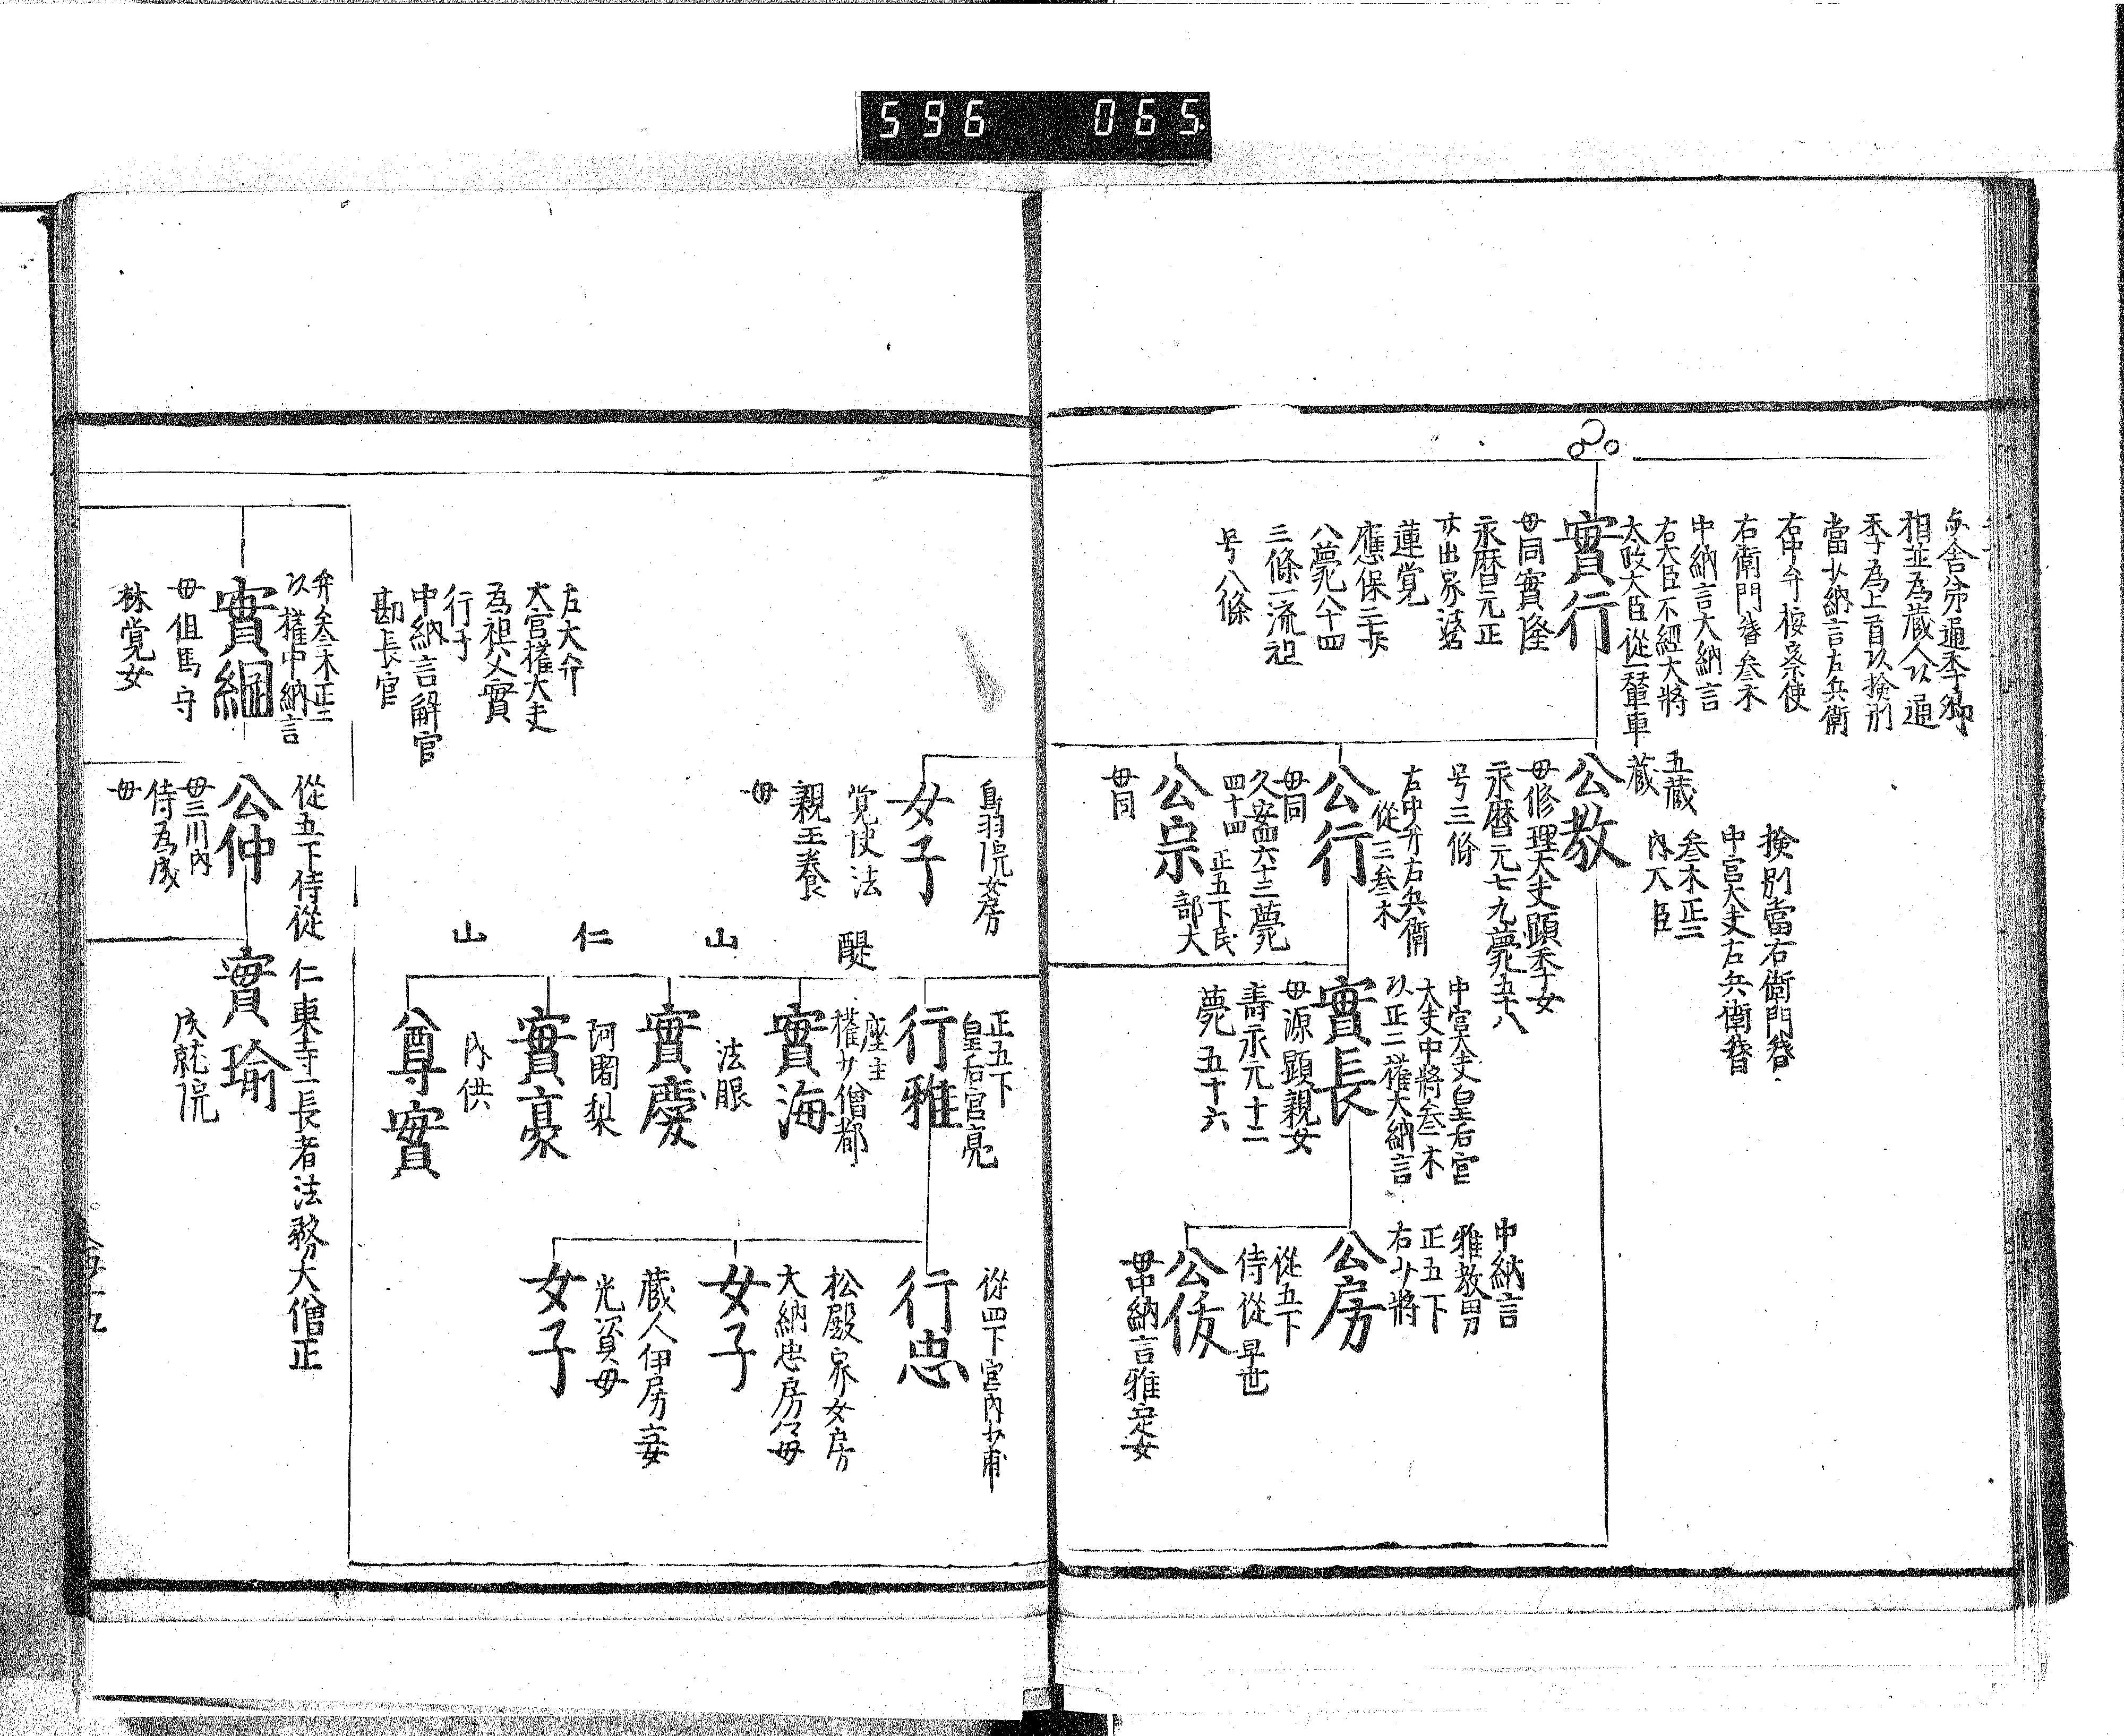 596 065
与舎弟通季卿
相並為蔵人以通
季為上首以検別
當少納言左兵衛
右中弁按察使
右衛門督叅木
中納言大納言
右大臣不經大將
太政大臣從一輦車
實行
毋同實隆
永暦元正
廿出家法名
蓮覚
應保二七廿
八薨八十四
三條一流祖
号八條
検別當右衛門督
中宮大夫左兵衛督
五蔵
叅木正二
蔵
內大臣
公教
毋修理大夫顕季女
永暦元七九薨五十八
号三條
左中弁右兵衛
從三叅木
公行
毋同
久安四六廿三薨
四十四
正五下民
部大
公宗
毋同
中宮大夫皇后宮
大夫中將叅木
以正二權大納言
實長
毋源顕親女
壽永元十二
薨五十六
中納言
雅教男
正五下
右少將
公房
從五下
侍從早世
公佐
毋中納言雅定女
鳥羽院女房
女子
覚快法
親王養
毋
正五下
皇后宮亮
行雅
醍
座主
權少僧都
實海
山
法眼
實慶
仁
阿闍梨
實豪
山
內供
尊實
從四下宮內少甫
行忠
松殿家女房
大納忠房公毋
女子
蔵人伊房妾
光資毋
女子
左大弁
大宮權大夫
為祖父實
行子
中納言解官
勘長官
弁叅木正二
以權中納言
實綱
毋但馬守
林覚女
從五下侍從
公仲
毋三川內
侍為成
毋
仁東寺一長者法務大僧正
實瑜
成就院